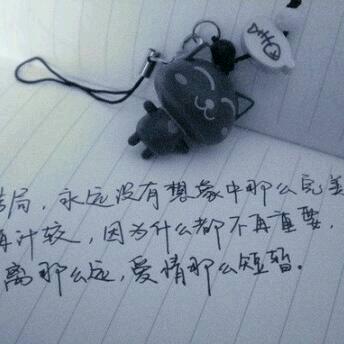 结局，永远没有想象中那么完美
再计较，因为什么都不再重要，
离那么远，爱情那么短暂.